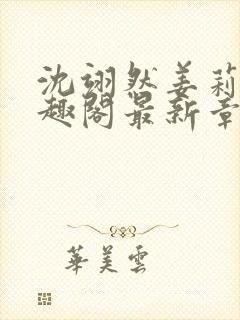 沈翊然姜莉
趣阁最新章
華美雲